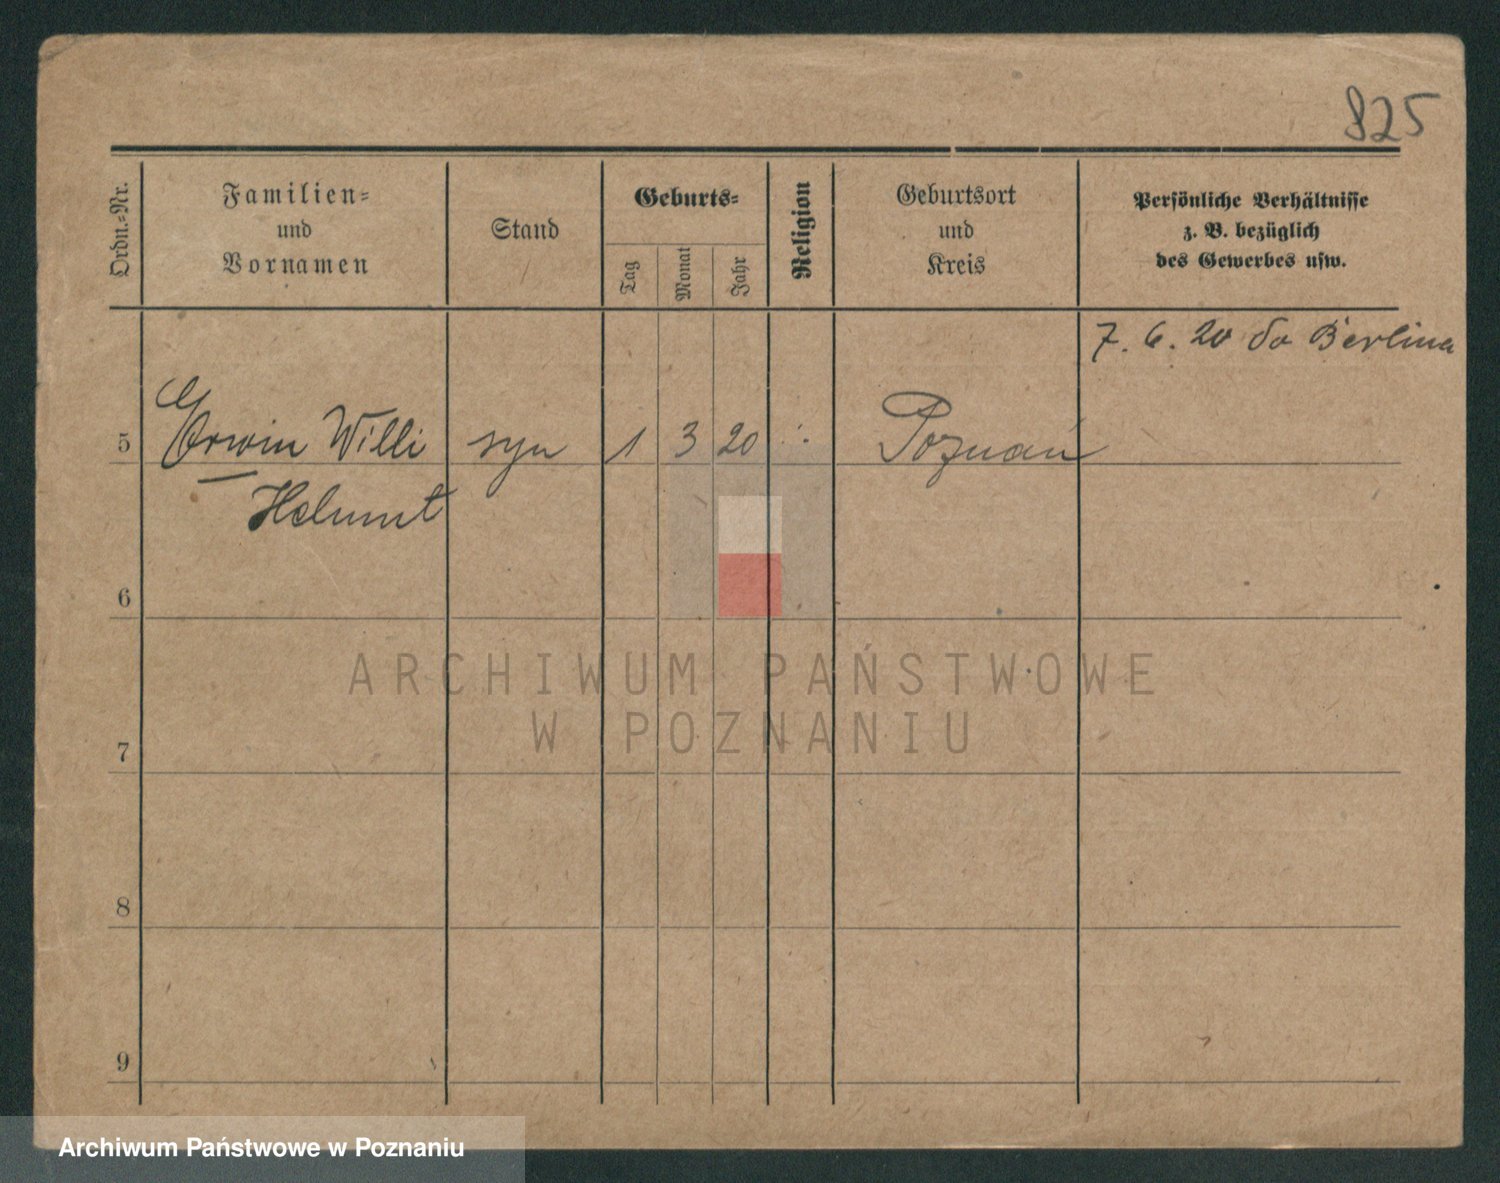 825
Ordn.-Nr.
Familien-
und
Vornamen
Stand
Geburts-
Tag
Monat
Jahr
Religion
Geburtsort
und
Kreis
Persönliche Verhältnisse
z. B. bezüglich
des Gewerbes usw.
7. 6. 20 do Berlina
5 Erwin Willi syn 1 3 20 Poznań
Helmut
6
7
8
9
ARCHIWUM PAŃSTWOWE
W POZNANIU
Archiwum Państwowe w Poznaniu